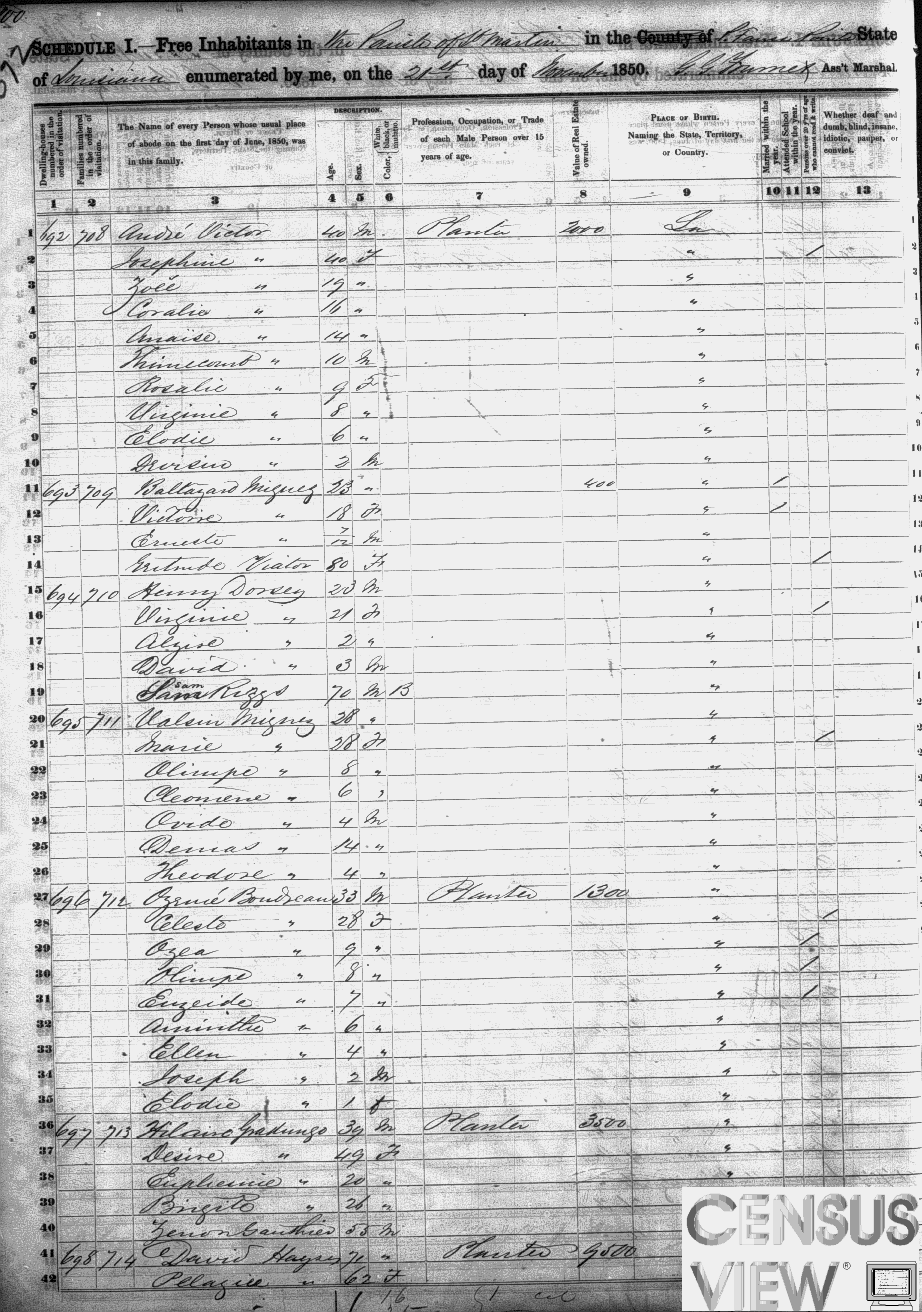 SCHEDULE I.—Free Inhabitants in the Parish of St Martin in the County of State
of Louisiana enumerated by me, on the 21st day of November 1850. Ass't Marshal.
Dwelling-houses numbered in the order of visitation.
Families numbered in the order of visitation.
The Name of every Person whose usual place of abode on the first day of June, 1850, was in this family.
DESCRIPTION.
Age.
Sex.
Color, White, black, or mulatto.
Profession, Occupation, or Trade of each Male Person over 15 years of age.
Value of Real Estate owned.
PLACE OF BIRTH. Naming the State, Territory, or Country.
Married within the year.
Attended School within the year.
Persons over 20 y'rs of age who cannot read & write.
Whether deaf and dumb, blind, insane, idiotic, pauper, or convict.
1 2 3 4 5 6 7 8 9 10 11 12 13
1 692 708 André Victor 40 M Planter 2000 La
2 Josephine " 40 F " /
3 Zoé " 19 " "
4 Coralie " 16 " "
5 Anaïse " 14 " "
6 " 10 M "
7 Rosalie " 9 F "
8 Virginie " 8 " "
9 Elodie " 6 " "
10 " 2 M "
11 693 709 Baltazard Miguez 23 " 400 " /
12 Victorie " 18 F " /
13 Erneste " 7/12 M "
14 Gertrude Viator 80 F " /
15 694 710 Henry Dorsey 23 M "
16 Virginie " 21 F " /
17 Alzire " 2 " "
18 David " 3 M "
19 Sam Riggs 70 M B "
20 695 711 Valsin Miguez 28 " "
21 Marie " 28 F " /
22 Olimpe " 8 " "
23 Cleomene " 6 " "
24 Ovide " 4 M "
25 Demas " 14 " "
26 Theodore " 4 " "
27 696 712 Ozemé Boudreau 33 M Planter 1300 "
28 Celeste " 28 F " /
29 Ozea " 9 " " /
30 Olimpe " 8 " " /
31 Euzeide " 7 " " /
32 " 6 " "
33 Ellen " 4 " "
34 Joseph " 2 M "
35 Elodie " 1 f "
36 697 713 Hilaire 39 M Planter 3500 "
37 Desire " 49 F "
38 Euphemie " 20 " "
39 Brigite " 26 "
40 Zenon Gauthier 55 M
41 698 714 David Hayes 71 " Planter 9500
42 Pelagie " 62 F
CENSUS
VIEW®